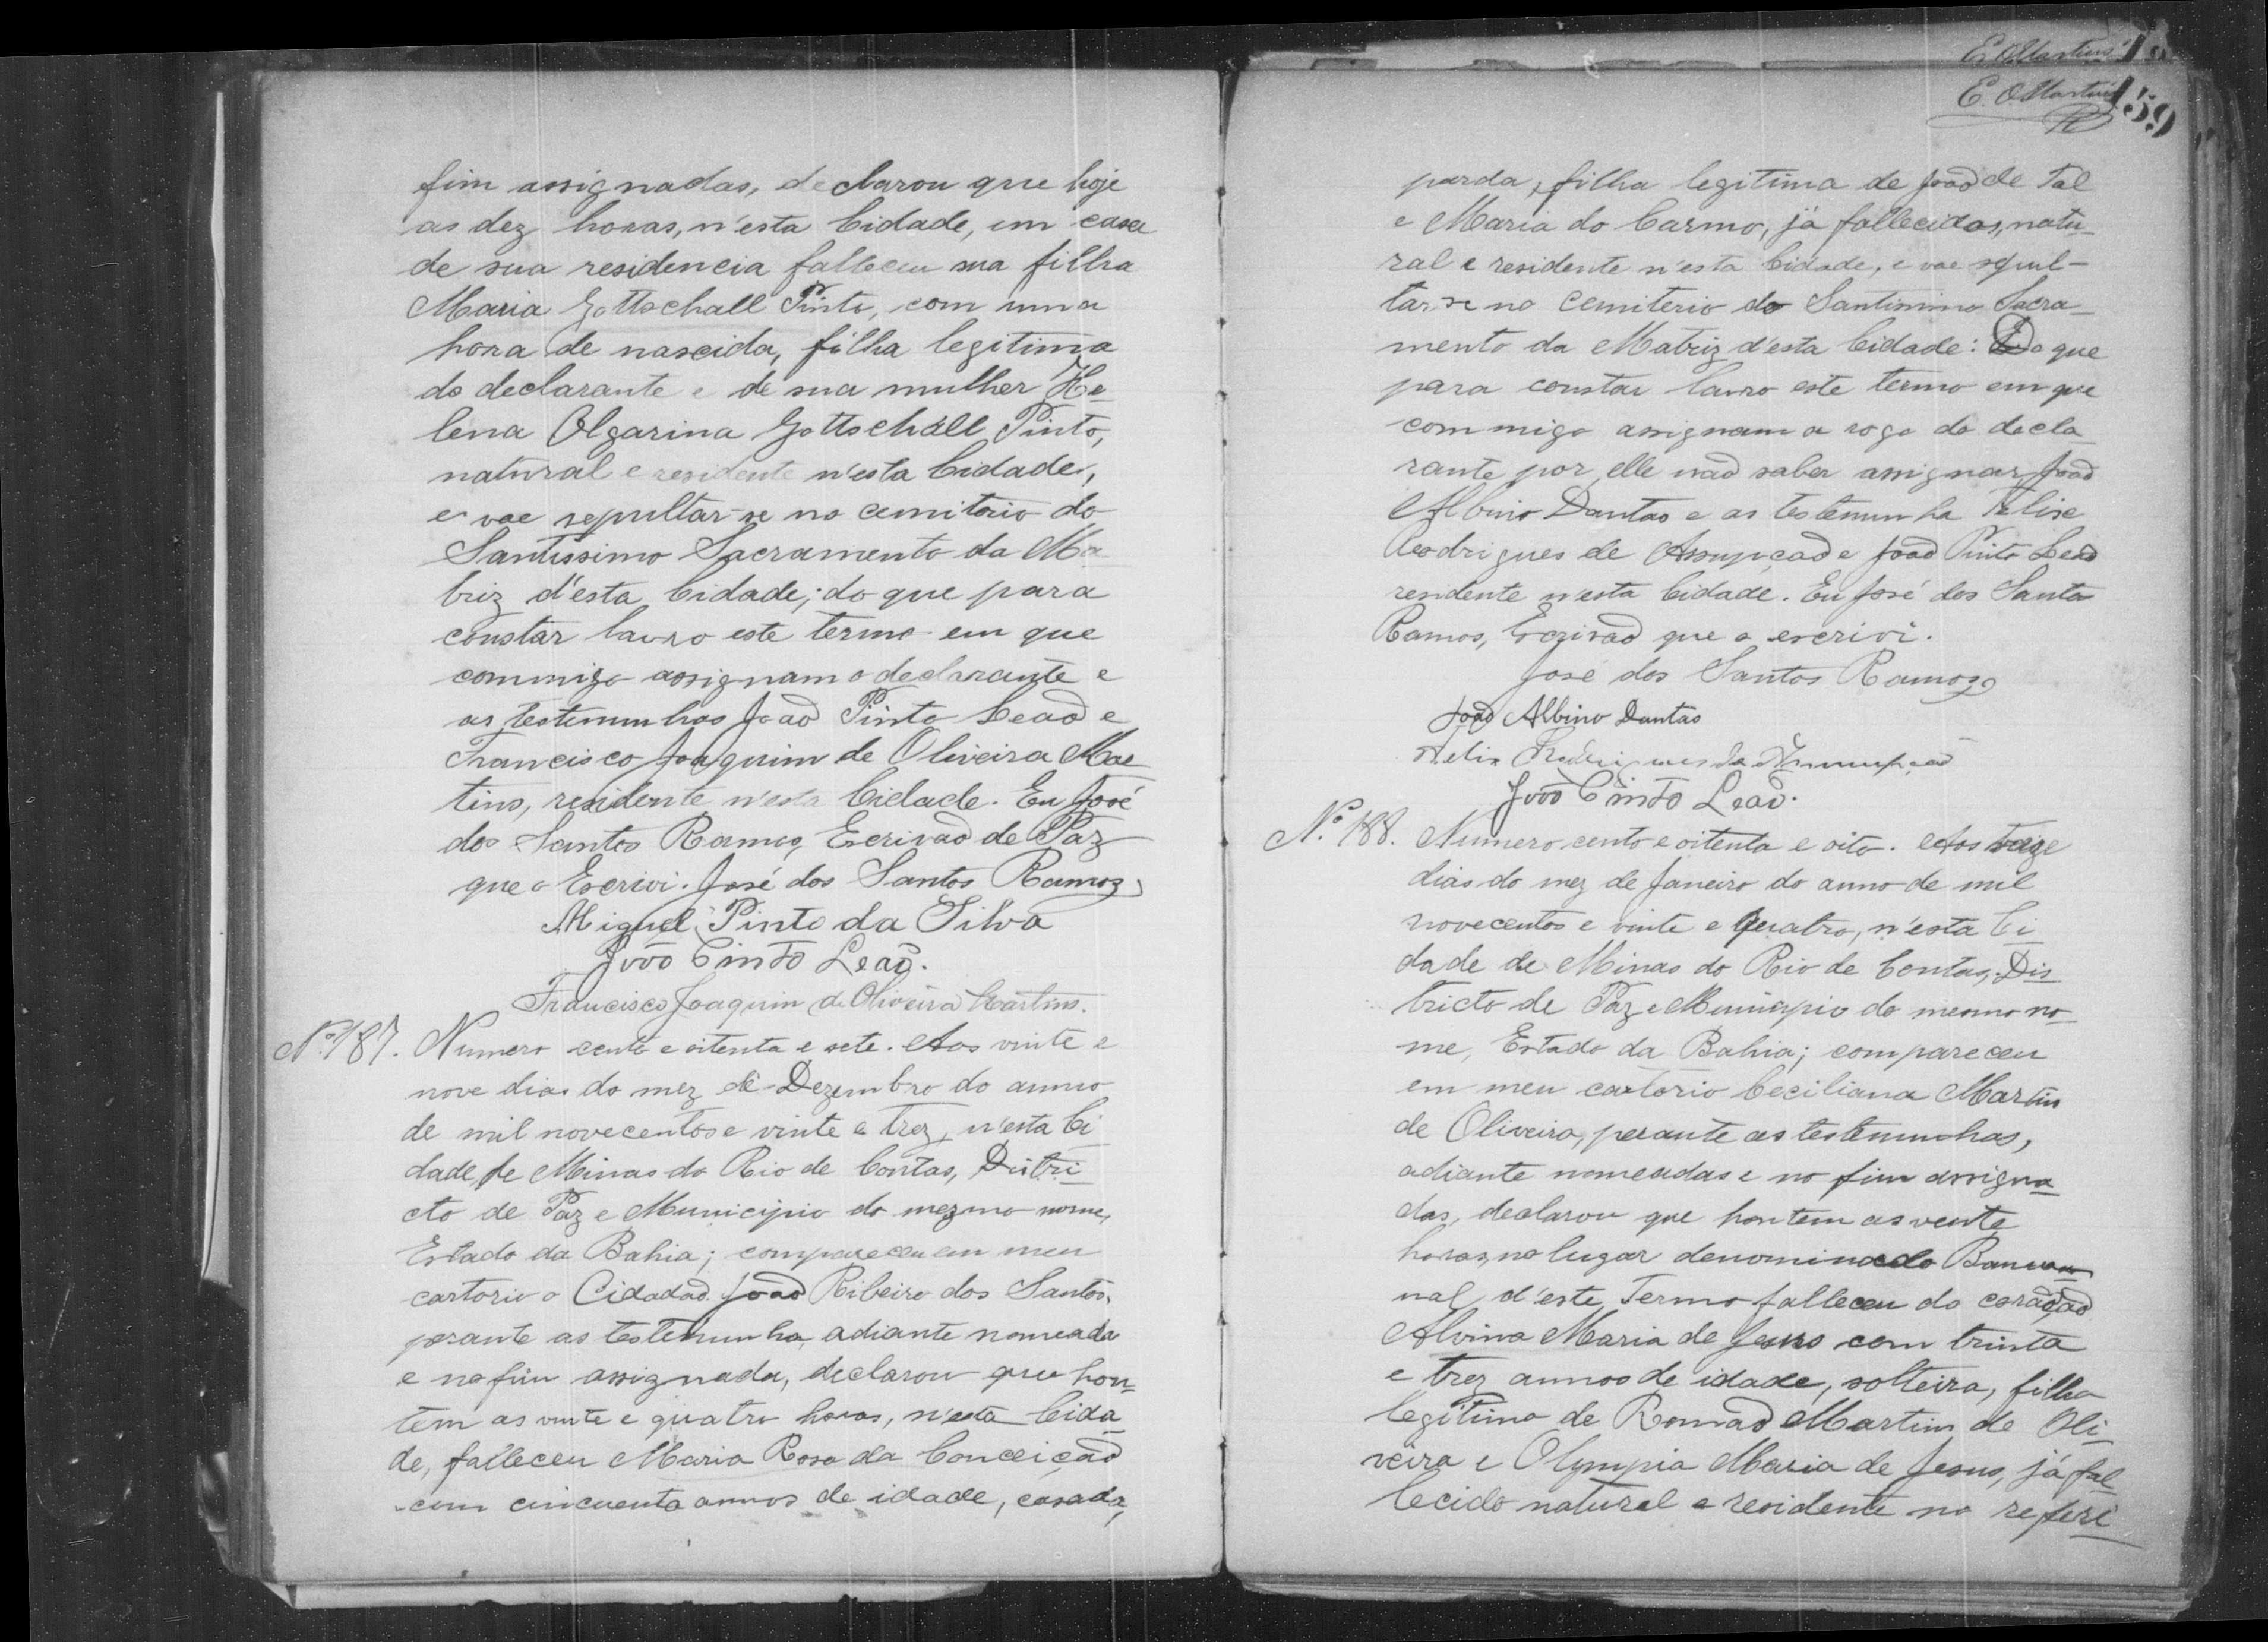 fim assignadas, declarou que hoje
as dez horas, n'esta Cidade, em casa
de sua residencia falleceu sua filha
Maria Gottschall Pinto, com uma
hora de nascida, filha legitima
do declarante e de sua mulher He-
lena Olgarina Gottschall Pinto,
natural e residente n'esta Cidade,
e vae sepultar-se no cemiterio do
Santissimo Sacramento da Ma-
triz d'esta Cidade; do que para
constar lavro este termo em que
commigo assignam o declarante e
as testemunhas João Pinto Leão e
Francisco Joaquim de Oliveira Mar
tins, residente n'esta Cidade. Eu José
dos Santos Ramos, Escrivão de Paz
que o Escrivi. José dos Santos Ramos,
Miguel Pinto da Silva
João Pinto Leão.
Francisco Joaquim de Oliveira Martins.
Nº 187. Numero cento e oitenta e sete. Aos vinte e
nove dias do mez de Dezembro do anno
de mil novecentos e vinte e trez, n'esta Ci
dade de Minas do Rio de Contas, Distri
cto de Paz e Municipio do mezmo nome,
Estado da Bahia; compareceu em meu
cartorio o Cidadão João Ribeiro dos Santos,
perante as testemunha, adiante nomeada
e no fim assignada, declarou que hon-
tem as vinte e quatro horas, n'esta Cida-
de, falleceu Maria Rosa da Conceição
com cincuenta annos de idade, casada,
E. O Martins
E. O Martins 159
parda, filha legitima de João de Tal
e Maria do Carmo, já fallecidos, natu-
ral e residente n'esta Cidade, e vae sepul-
tar-se no cemiterio do Santissimo Sacra-
mento da Matriz d'esta Cidade: Do que
para constar lavro este termo em que
commigo assignam a rogo do decla
rante por elle não saber assignar João
Albino Dantas e as testemunha Felix
Rodrigues de Assumpção e João Pinto Leão
residente n'esta Cidade. Eu José dos Santos
Ramos, Escrivão que o escrivi.
José dos Santos Ramos,
João Albino Dantas
Felix Rodrigues da Assumpção
João Pinto Leão.
Nº 188. Numero cento e oitenta e oito. Aos treze
dias do mez de Janeiro do anno de mil
novecentos e vinte e quatro, n'esta Ci
dade de Minas do Rio de Contas, Dis-
tricto de Paz e Municipio do mesmo no-
me, Estado da Bahia; compareceu
em meu cartorio Ceciliana Martins
de Oliveira, perante as testemunhas,
adiante nomeadas e no fim assigna-
das, declarou que hontem as vente
horas, no lugar denominado Banana
nal d'este Termo falleceu do coração
Alvina Maria de Jesus com trinta
e trez annos de idade, solteira, filha
legitima de Romão Martins de Oli-
veira e Olympia Maria de Jesus, já fal-
lecido natural e residente no referi